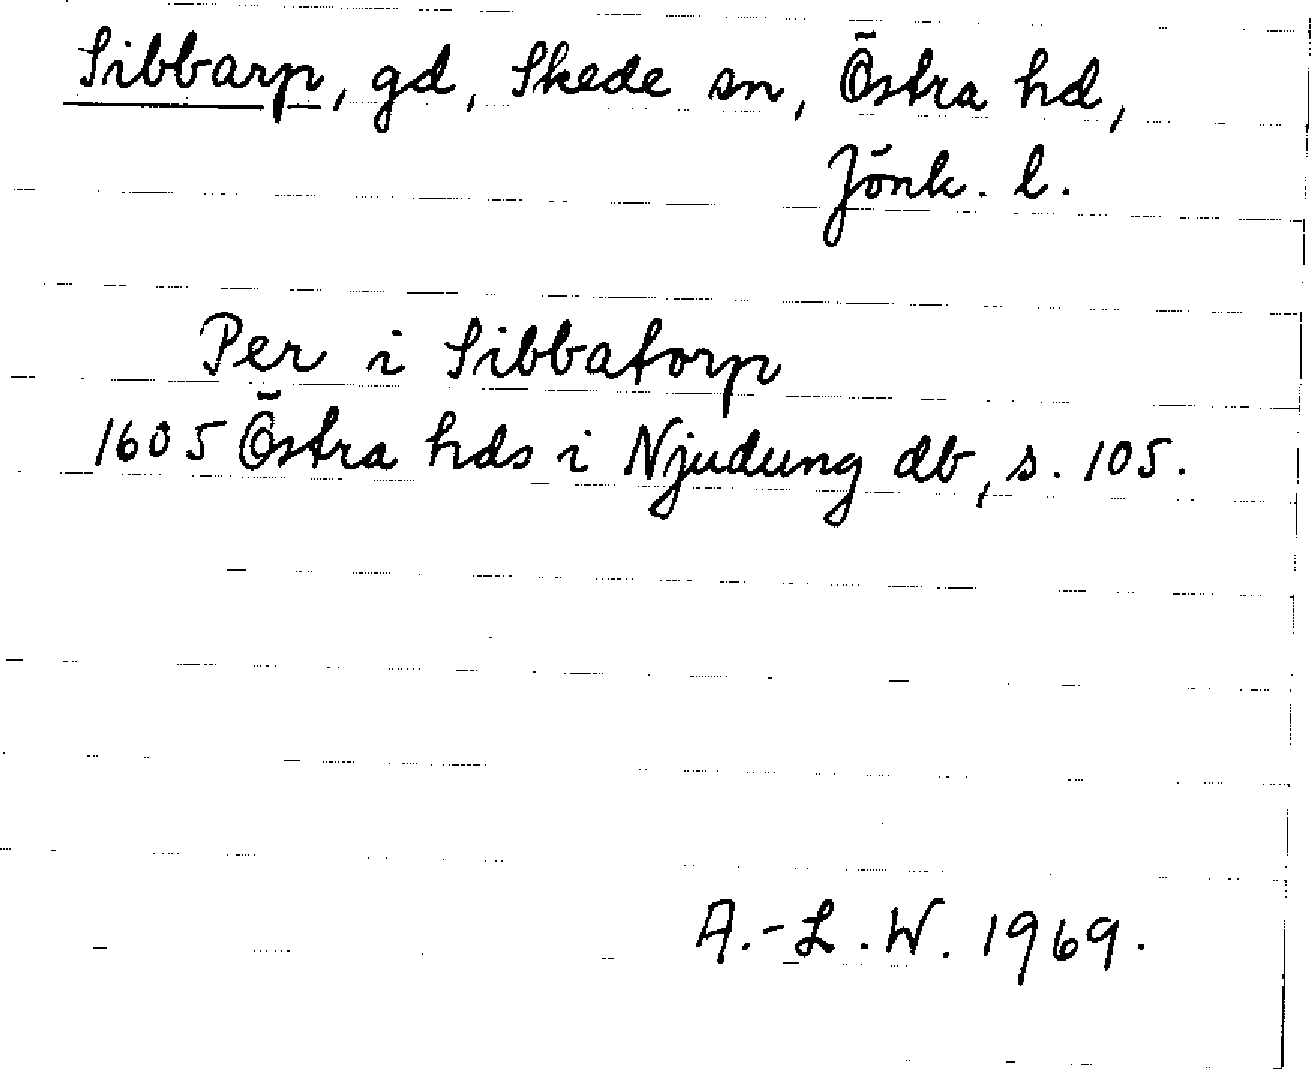 Sibbarp, gd, Skede sn, Östra hd,
Jönk. l.
Per i Sibbatorp
1605 Östra hds i Njudung db, s. 105.
A.-L.W. 1969.